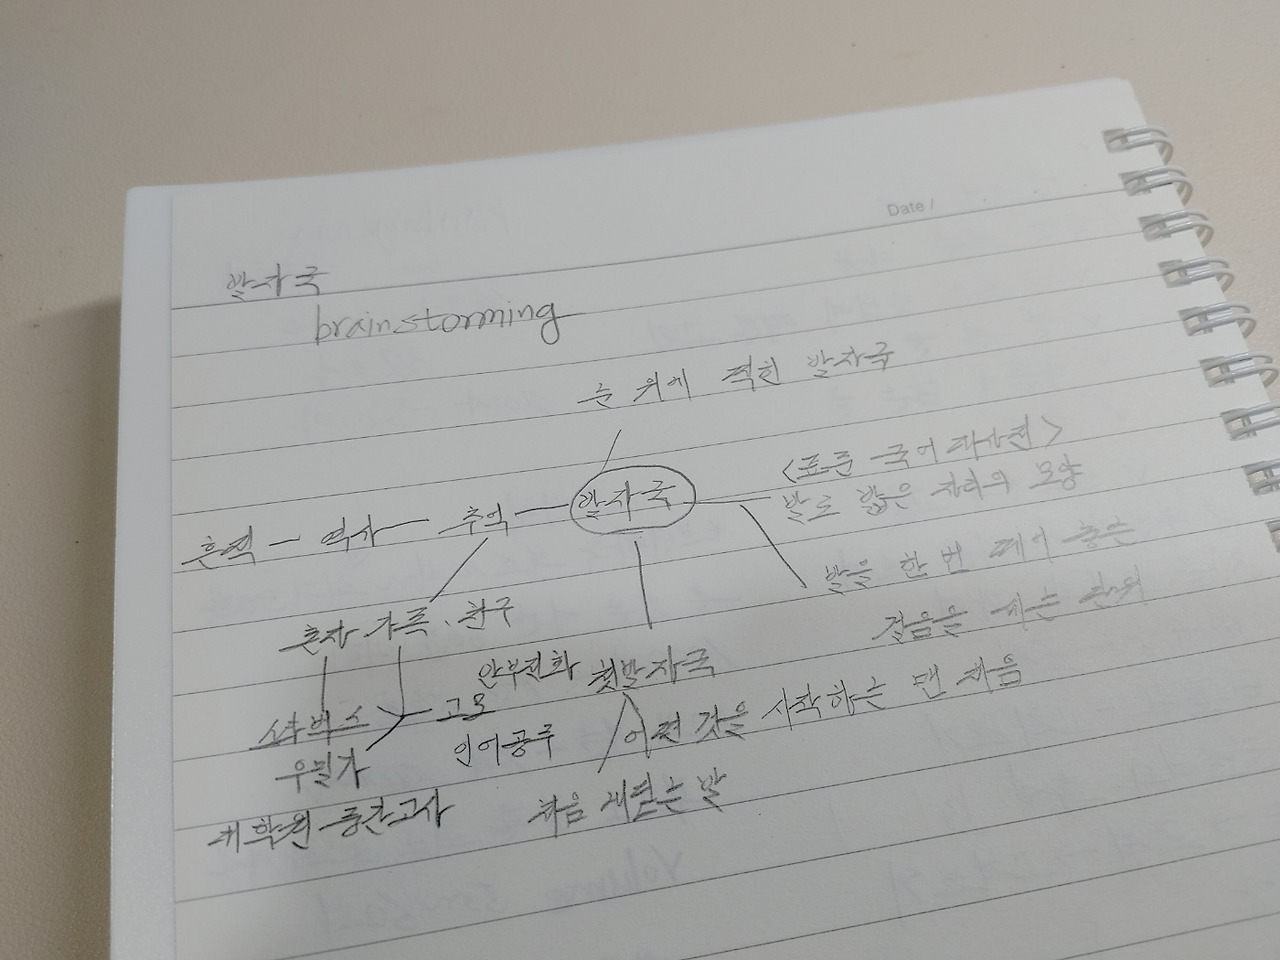 Date /
발자국
brainstorming
눈 위에 찍힌 발자국
<표준 국어 대사전>
발로 밟은 자리의 모양
흔적 - 역사 - 추억 - 발자국
발을 한 번 떼어 놓는
걸음을 세는 단위
혼자 가족、친구
안부전화 첫발자국
스타벅스 고모
어떤 것을 시작하는 맨 처음
인어공주
우렁가
대학원 중간고사
처음 내딛는 발